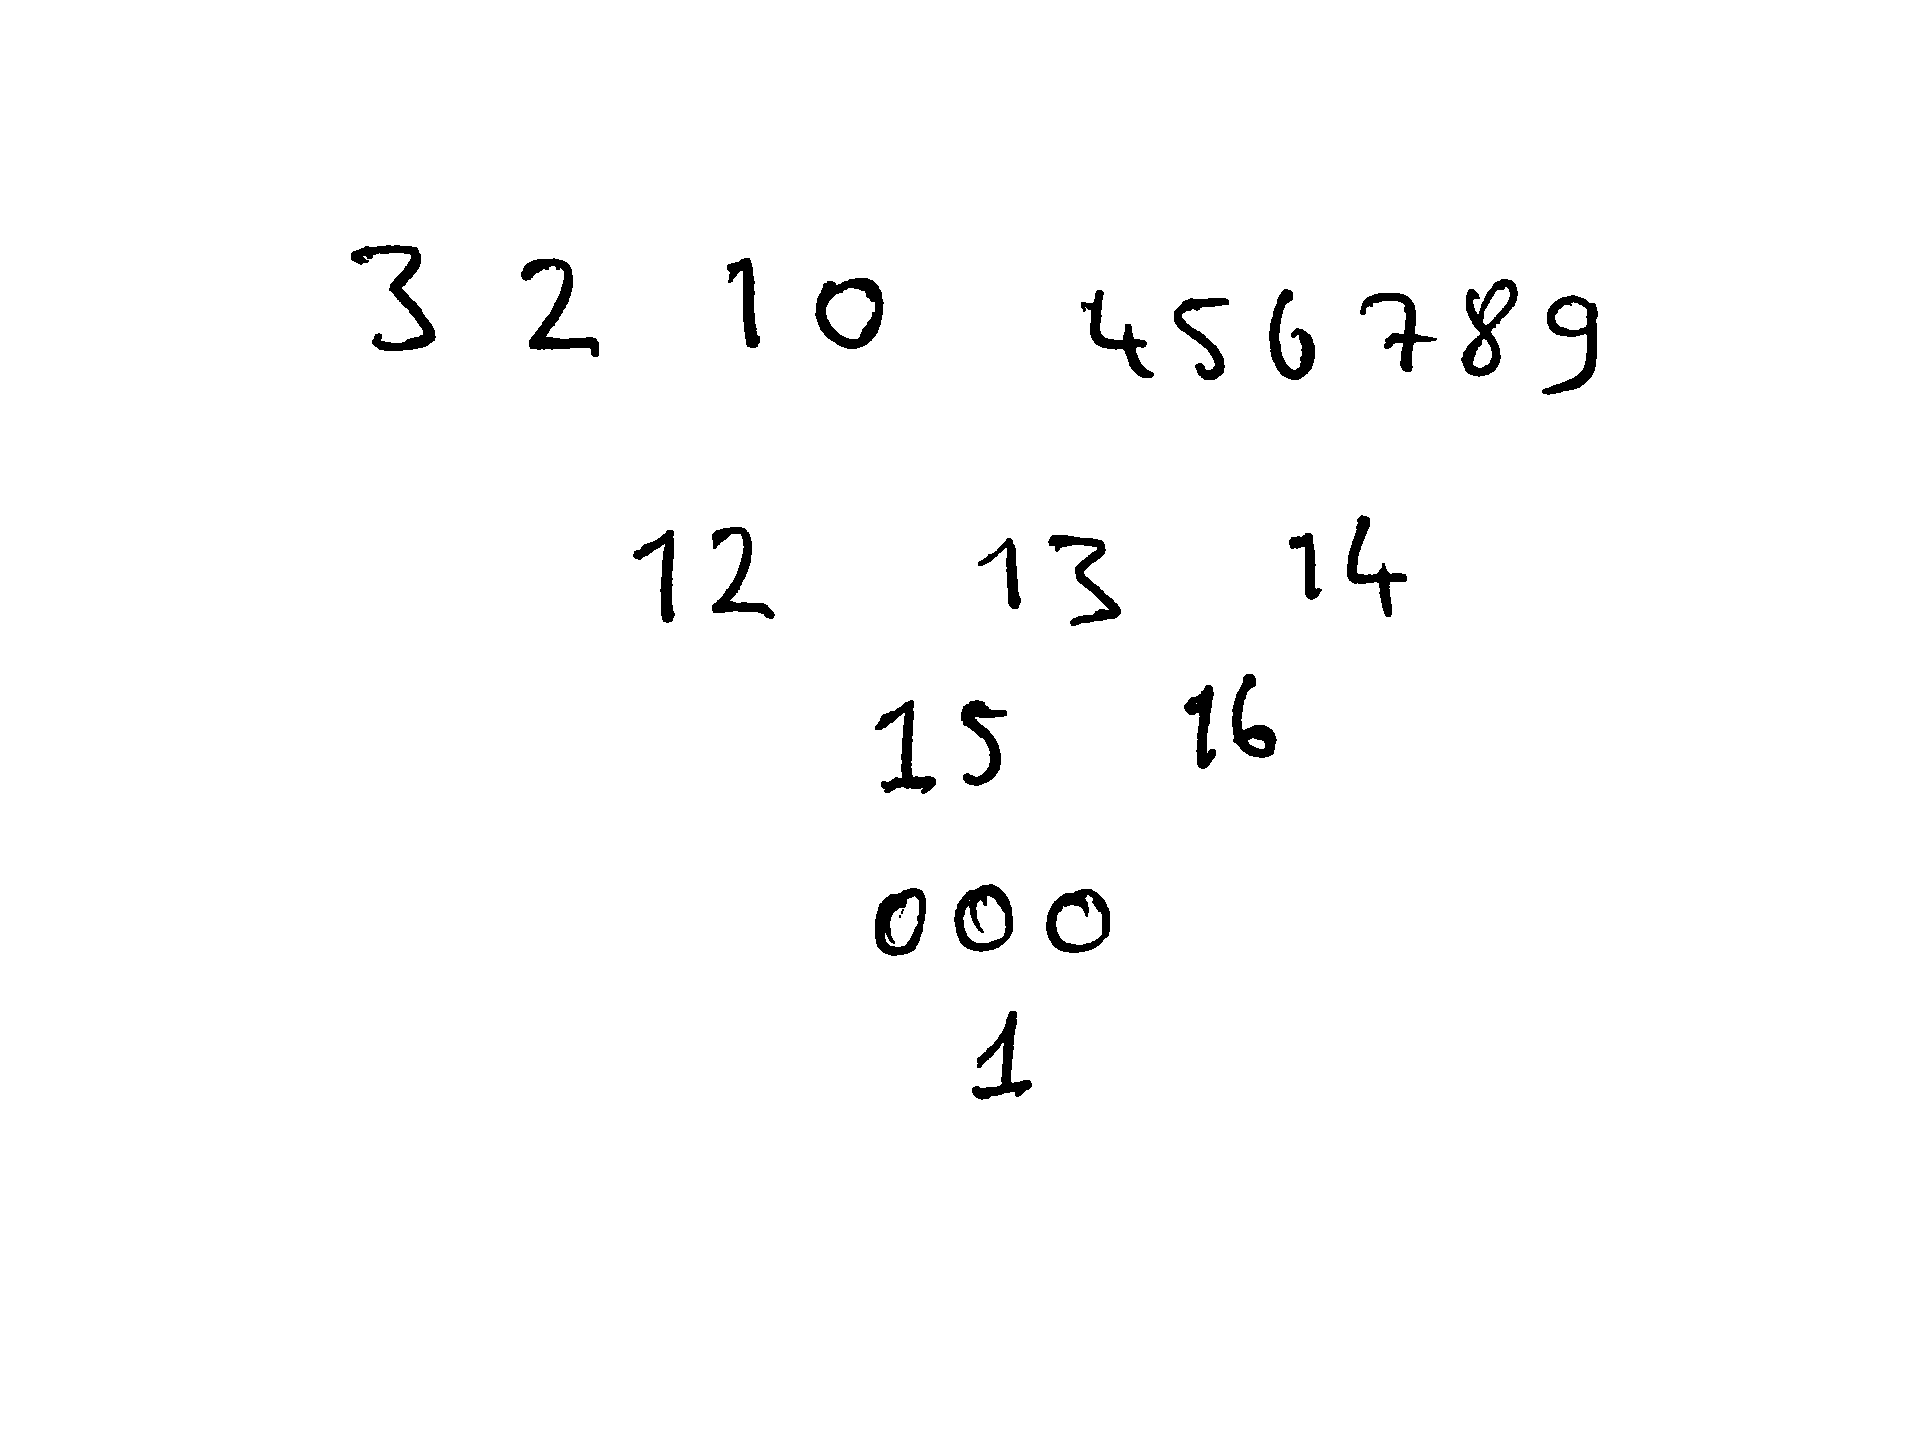 3 2 1 0 4 5 6 7 8 9
12 13 14
15 16
0 0 0
1